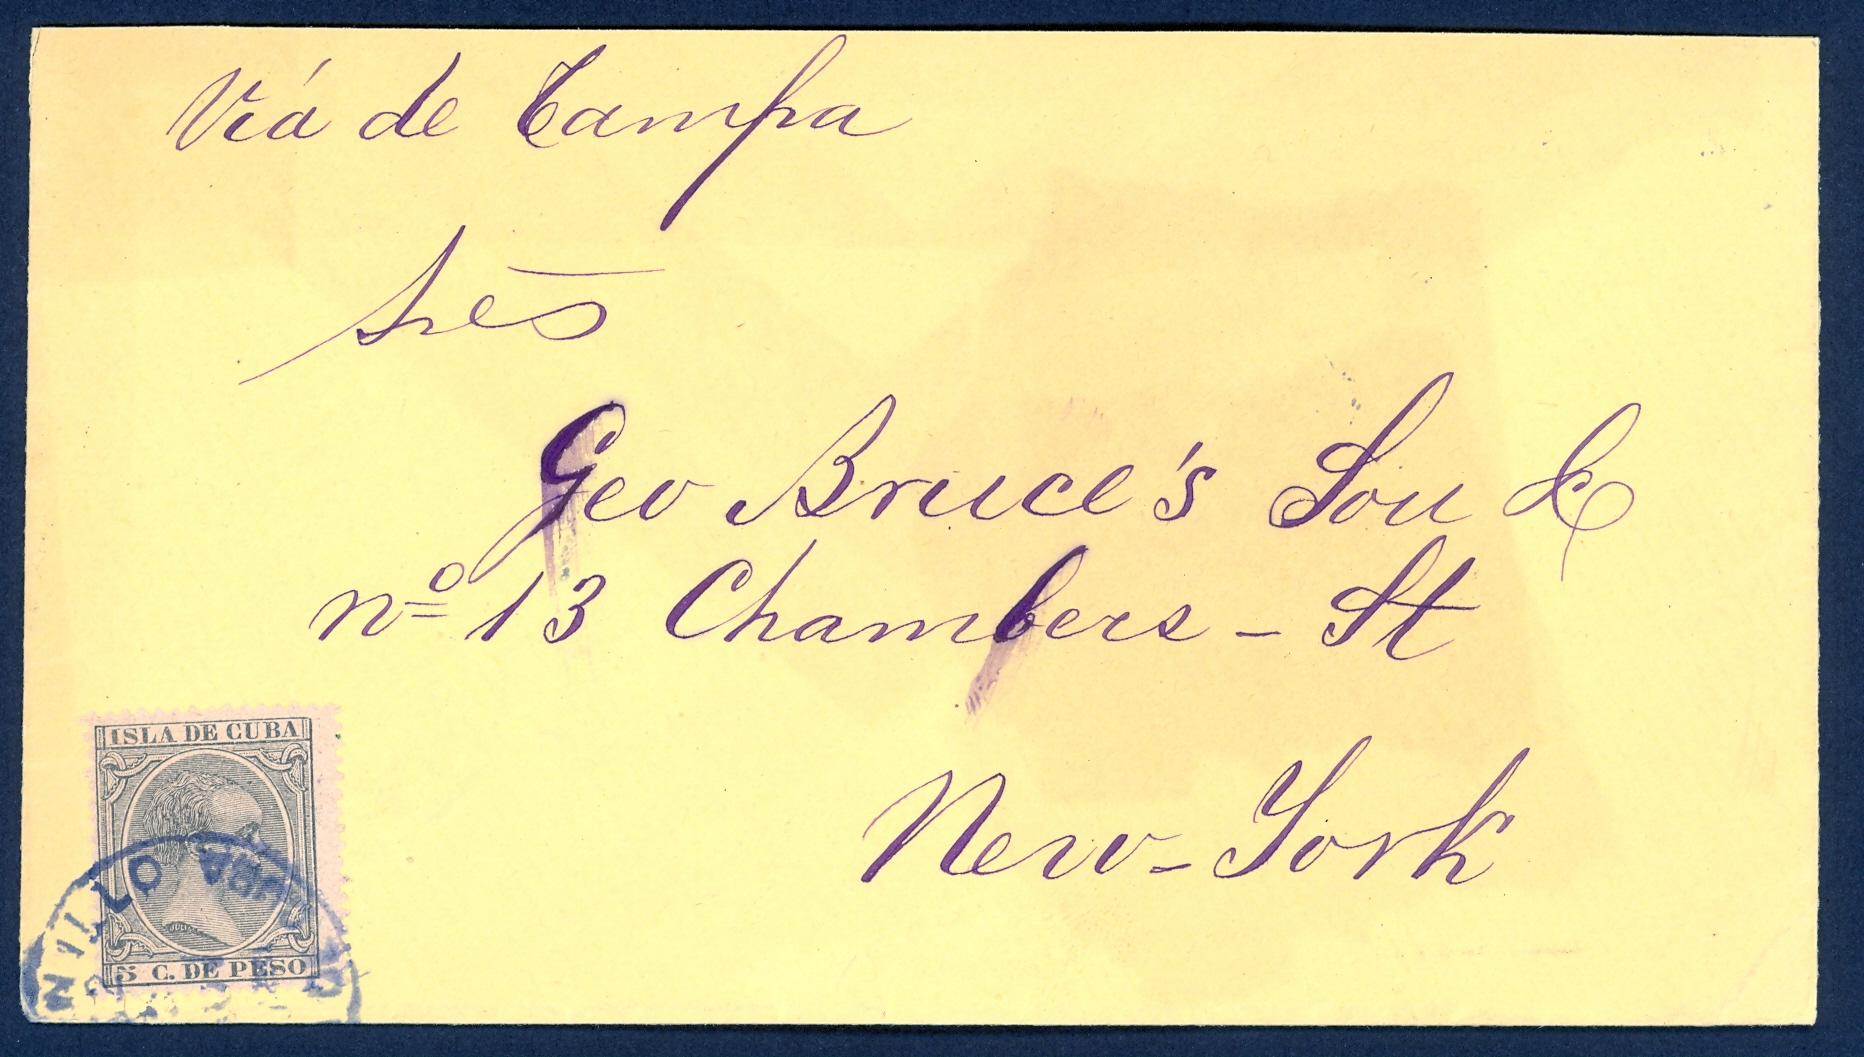 Viá de Tampa
Sres
Geo Bruce's Son &
nº 13 Chambers - St
New - York
ISLA DE CUBA
5 C. DE PESO